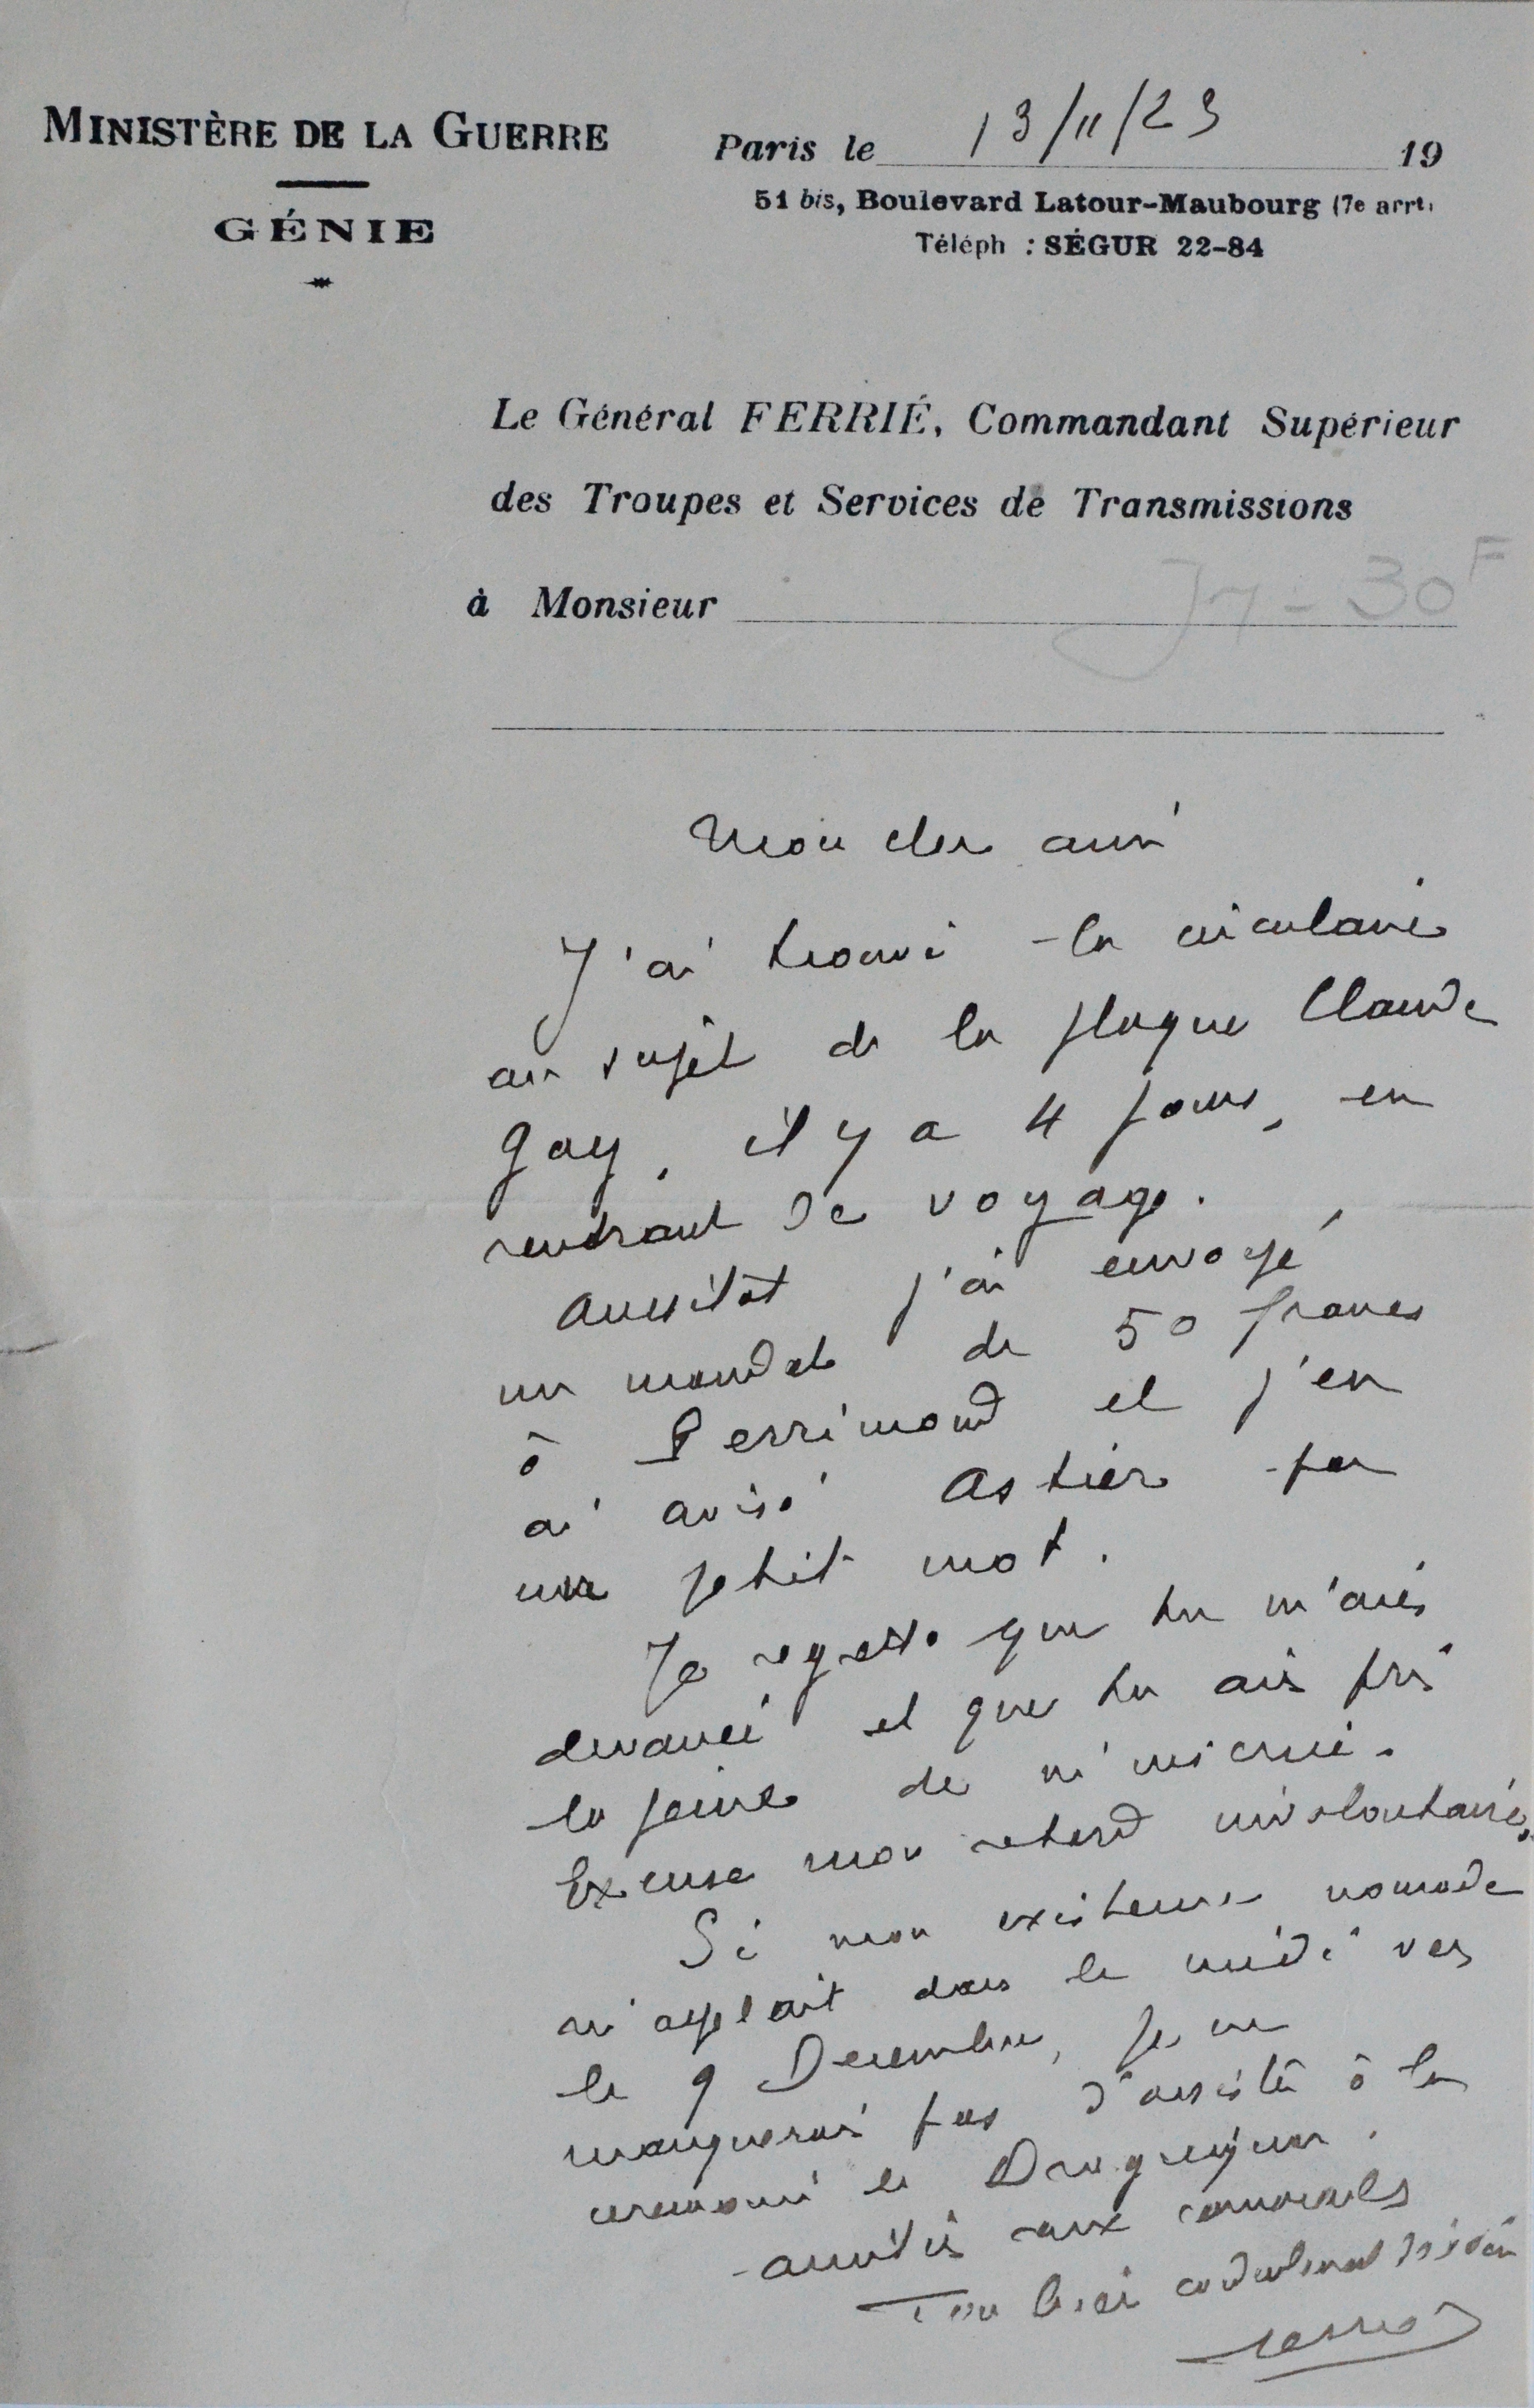 MINISTÈRE DE LA GUERRE
GÉNIE
Paris le 13/11/23 19
51 bis, Boulevard Latour-Maubourg (7e arrt)
Téléph : SÉGUR 22-84
Le Général FERRIÉ, Commandant Supérieur
des Troupes et Services de Transmissions
à Monsieur
30F
Mon cher ami
J'ai trouvé la circulaire
au sujet de la plaque Claude
Gay, il y a 4 jours, en
rentrant de voyage.
Aussitôt j'ai envoyé
un mandat de 50 francs
à Perrimond et j'en
ai avisé Astier par
un petit mot.
Je regrette que tu m'aies
devancé et que tu ais pris
la peine de m'écrire.
Excuse mon retard involontaire.
Si mon existence nomade
m'appelait dans le midi vers
le 9 Decembre, je ne
manquerais pas d'assister à la
ceremonie de Draguignan.
amitiés aux camarades
Ton bien cordialement dévoué
Ferrié